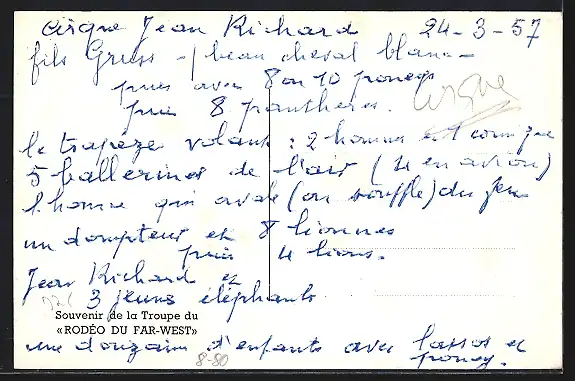 Cirque Jean Richard 24-3-57
fils Gruss - 1 beau cheval blanc -
puis avec 8 ou 10 poneys
puis 8 panthères.
cirque
le trapèze volant : 2 hommes et 1 comique
5 ballerines de l'air (4 en avion)
l'homme qui avale (ou souffle) du feu
un dompteur et 8 lionnes
puis 4 lions.
Jean Richard et
3 jeunes éléphants
Souvenir de la Troupe du
«RODÉO DU FAR-WEST»
une douzaine d'enfants avec lassos et
poney.
8-80